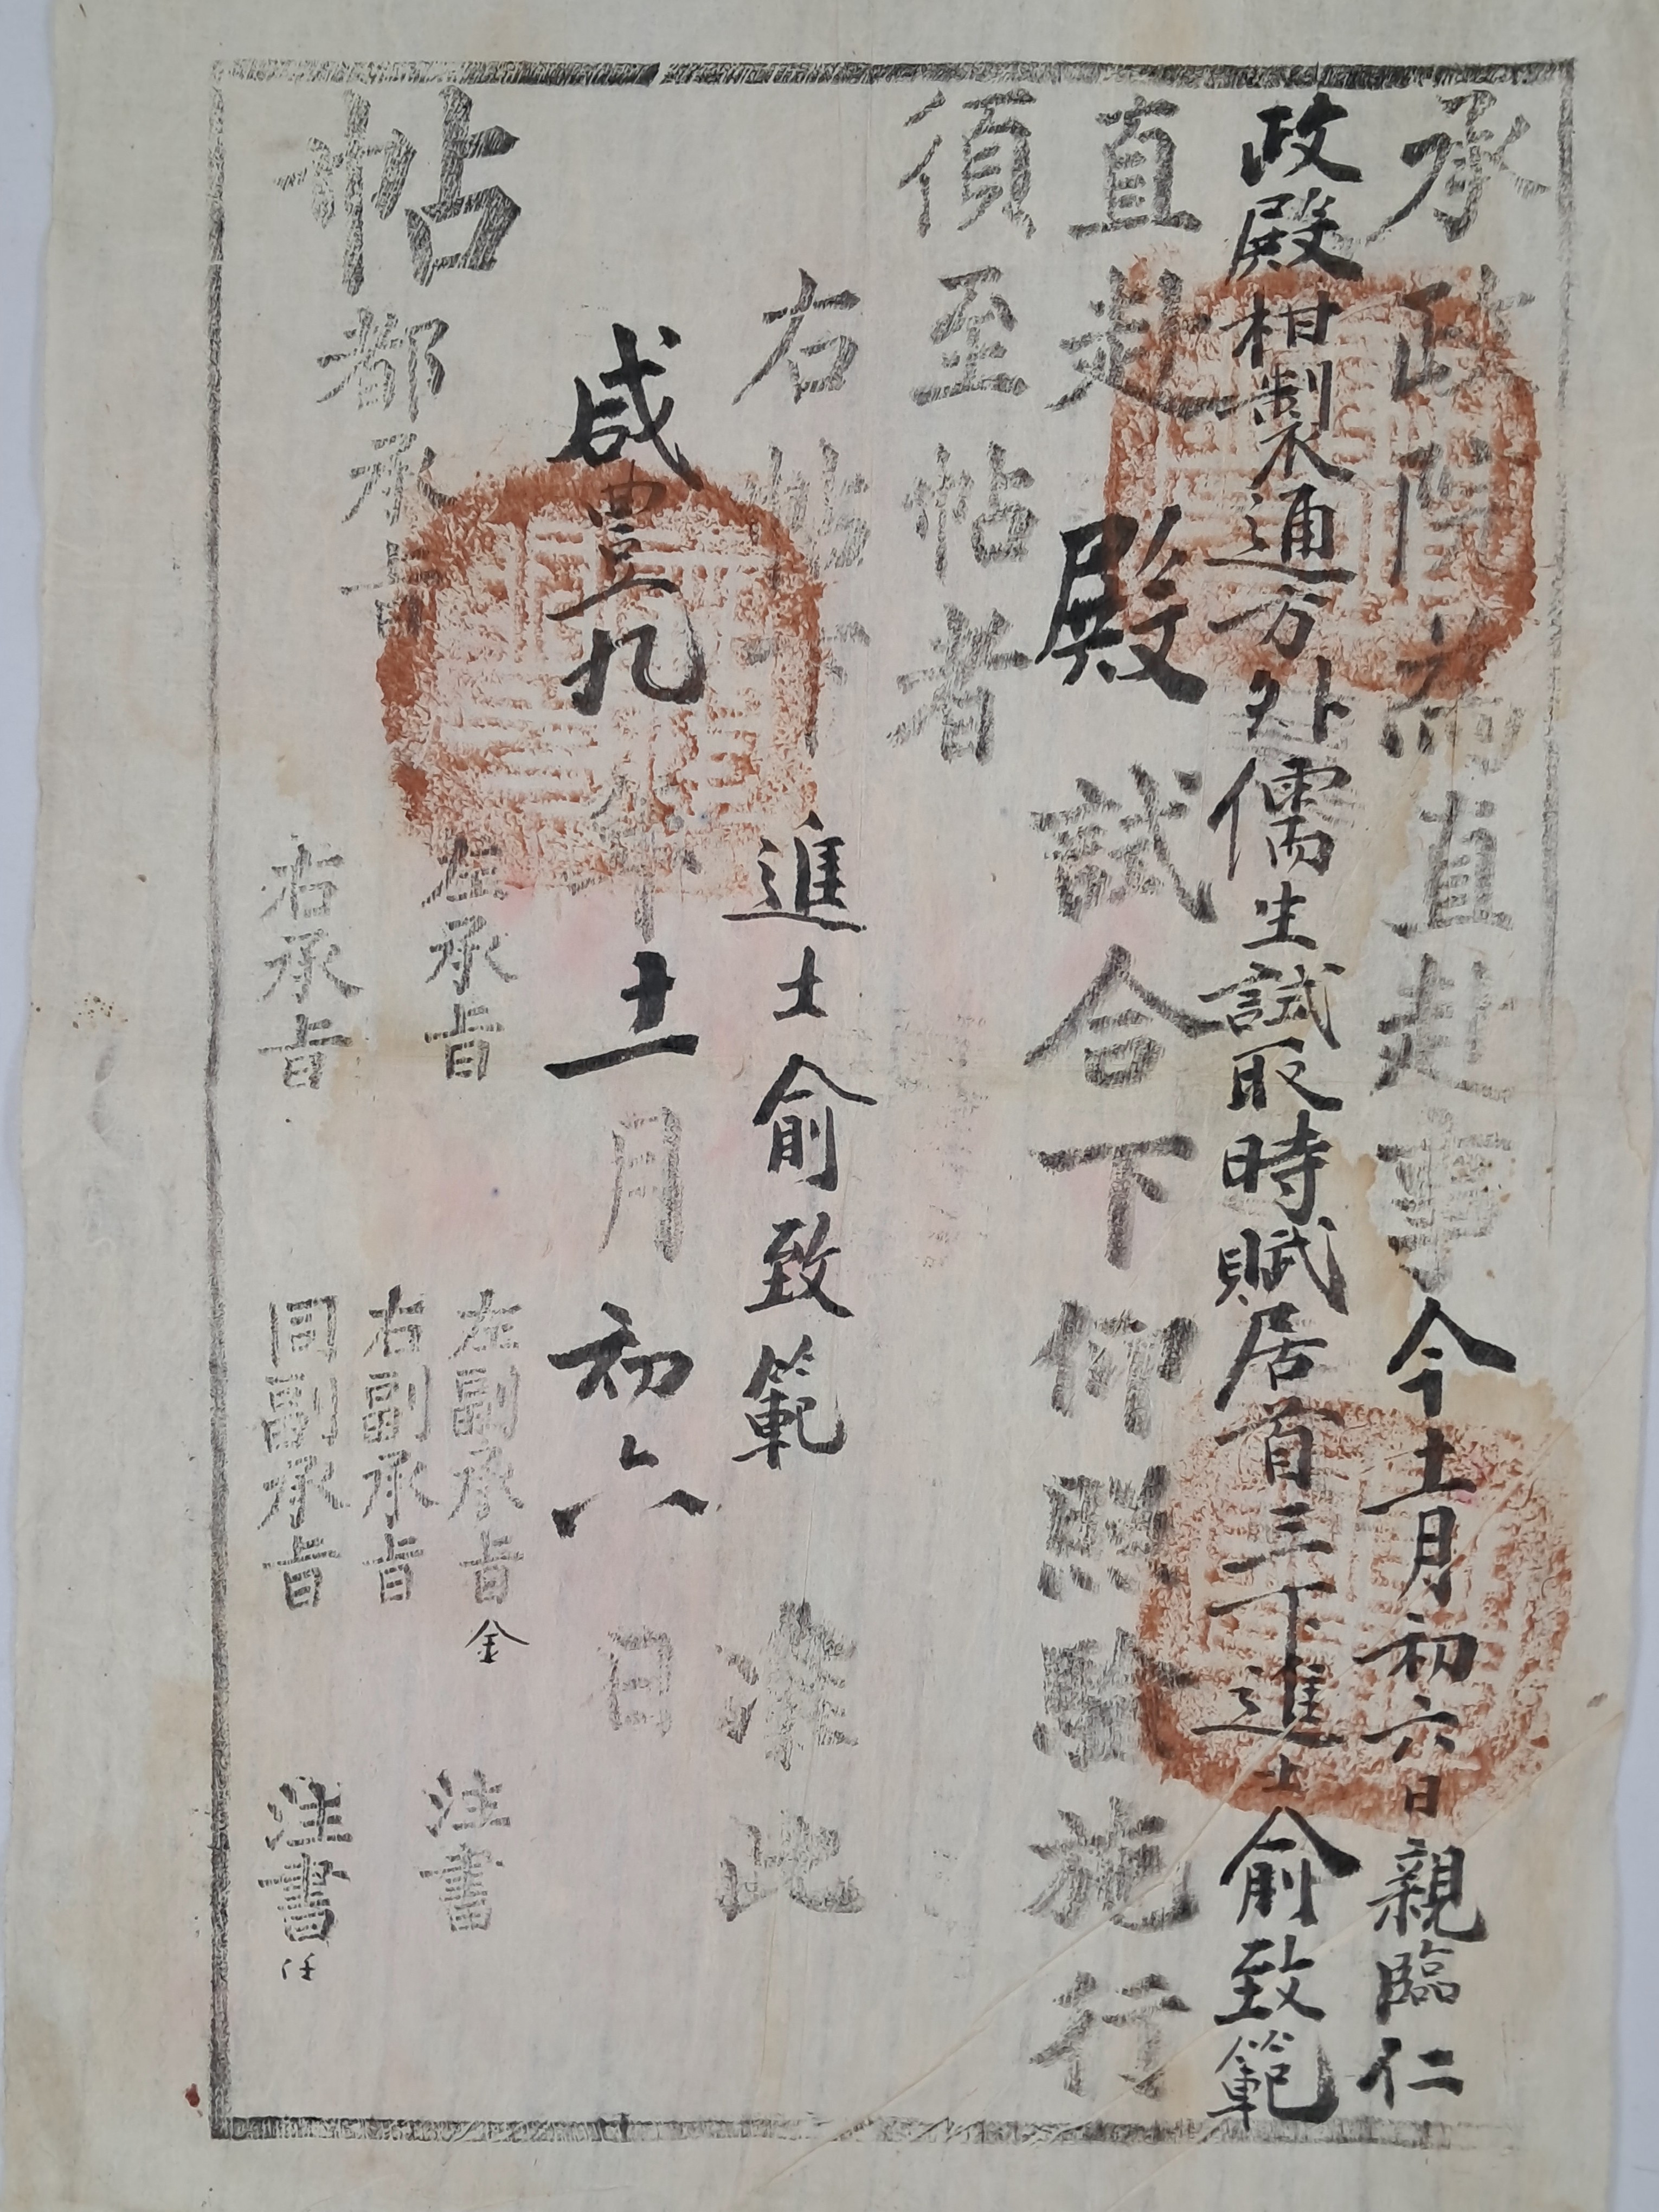 承政院爲直赴事今十一月初六日親臨仁
政殿柑製通方外儒生試取時賦居首三下進士俞致範
直赴殿試合下仰照驗施行
須至帖者
右帖下進士俞致範准此
咸豊九年十一月初六日
帖都承旨
左承旨
右承旨
左副承旨金
右副承旨
同副承旨
注書
注書任